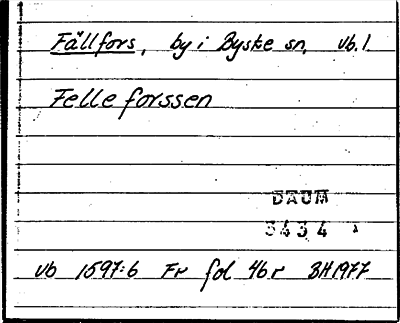 Fällfors, by i Byske sn, vb.l
Felle forssen
DAUM
3434
vb 1597:6 Fr fol 46r BH1977